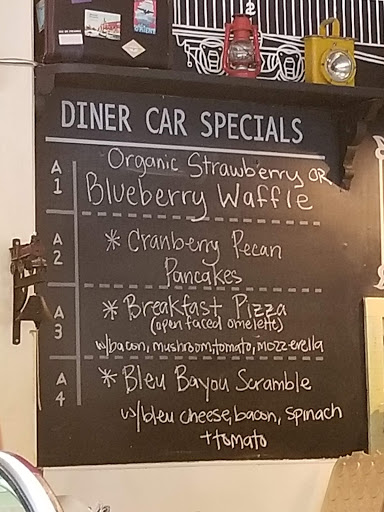 DINER CAR SPECIALS
A1 Organic Strawberry OR
Blueberry Waffle
A2 * Cranberry Pecan
Pancakes
A3 * Breakfast Pizza
(open faced omelette)
w/bacon, mushroom, tomato, mozzerella
A4 * Bleu Bayou Scramble
w/bleu cheese, bacon, spinach
+ tomato